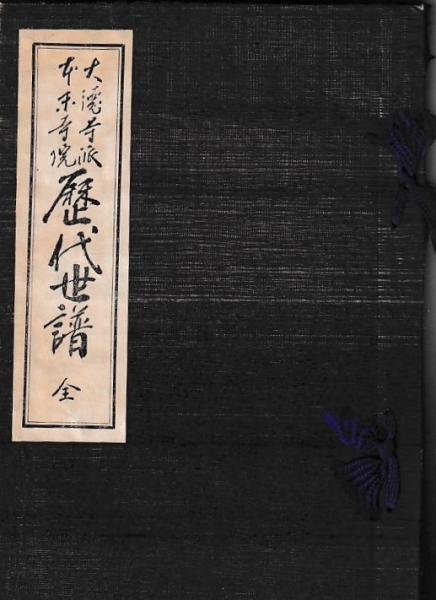 大徳寺派
本末寺院
歴代世譜 全